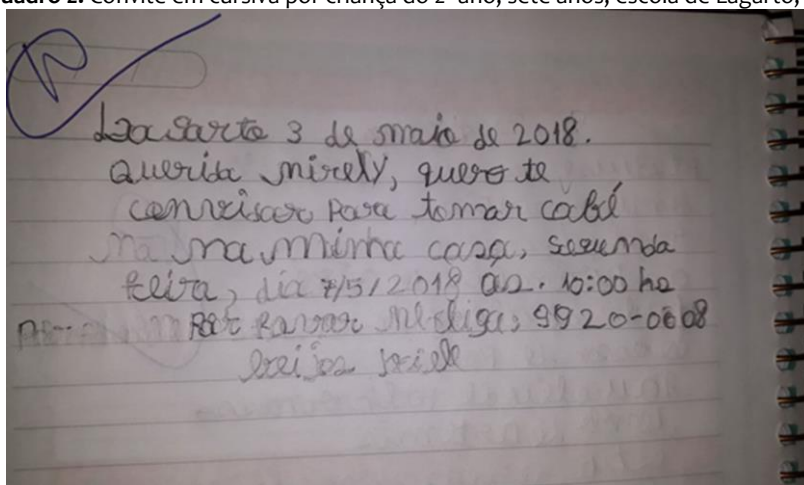 Quadro 2. Convite em cursiva por criança do 2º ano, sete anos, escola de Lagarto,
Lagarto 3 de maio de 2018.
Querida mirely, quero te
convisar Para tomar cabé
na minha casa, segunda
feira, dia 7/5/2018 as. 10:00 ho
Por favor me liga, 9920-0608
beijos